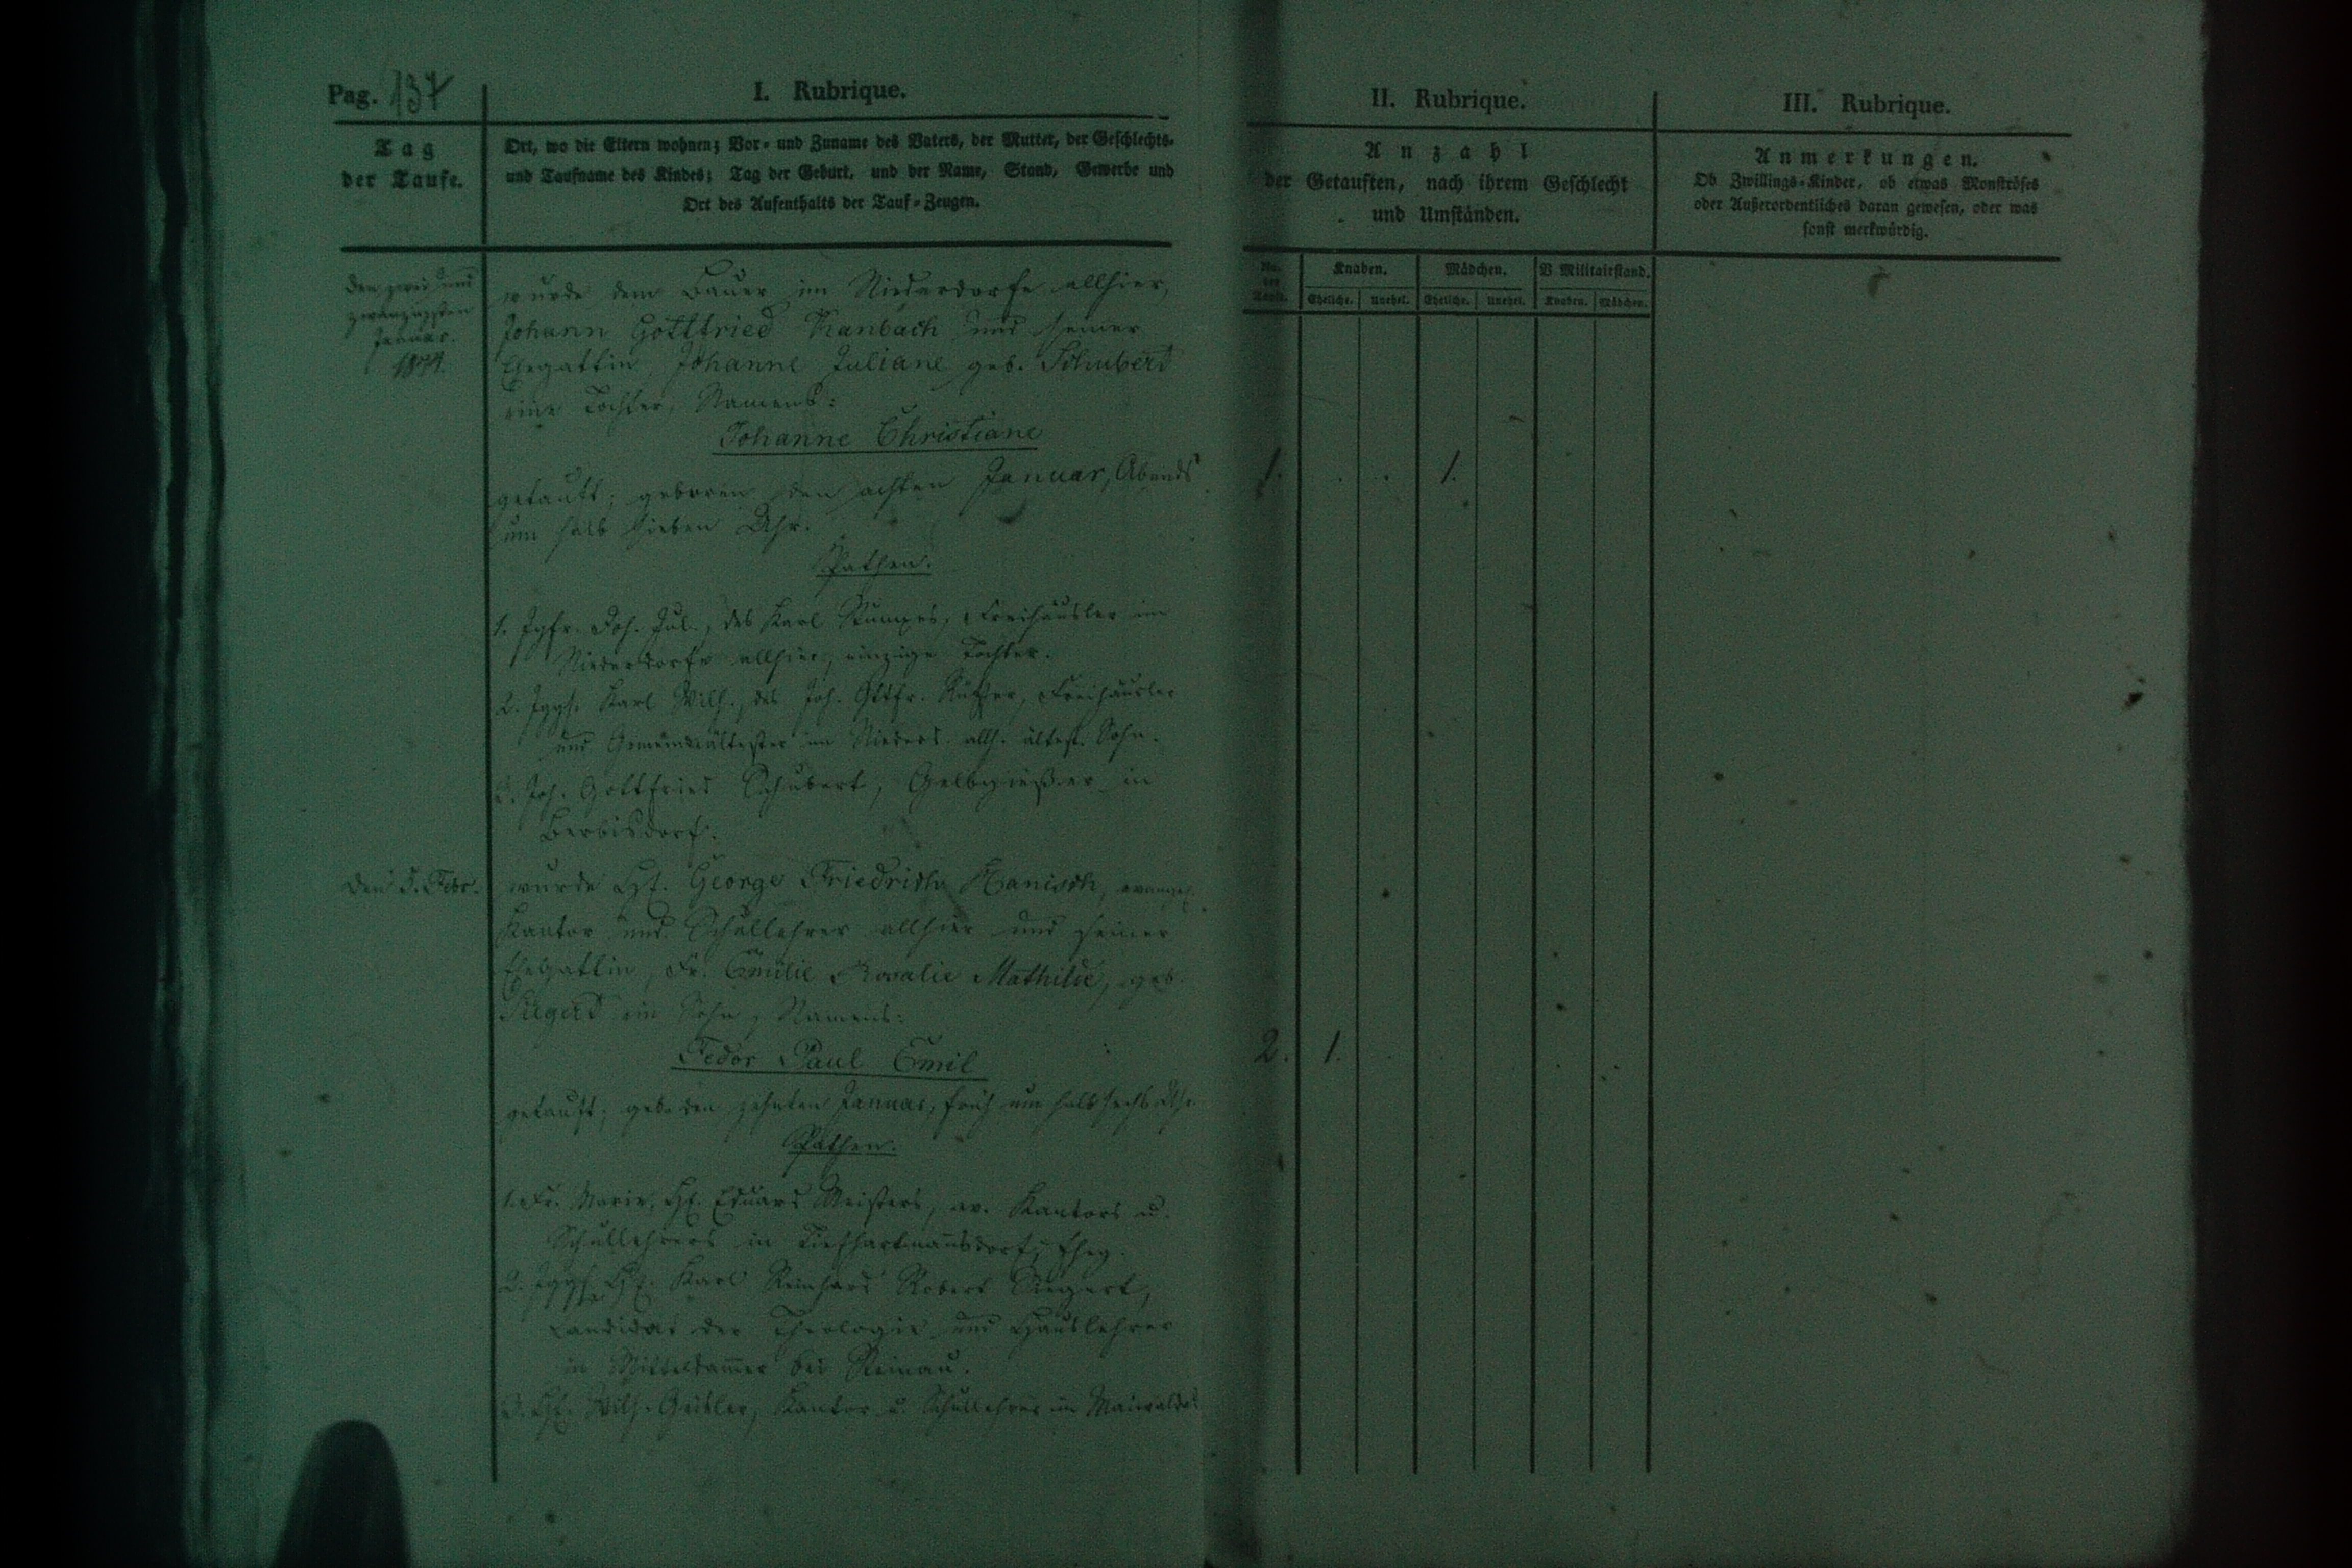 Pag. 137
I. Rubrique.
Tag
der Taufe.
Ort, wo die Eltern wohnen; Vor- und Zuname des Vaters, der Mutter, der Geschlechts-
und Taufname des Kindes; Tag der Geburt, und der Name, Stand, Gewerbe und
Ort des Aufenthalts der Tauf-Zeugen.
den zwei und
zwanzigsten
Januar.
wurde dem Bauer im Niederdorfe allhier,
Johann Gottfried Kanbach und seiner
Ehegattin, Johanne Juliane geb. Schubert
eine Tochter, Namens:
Johanne Christiane
getauft; geboren den achten Januar, Abends
um halb sieben Uhr.
Pathen.
1. Jgfr. Joh. Jul., des Karl Freihäusler im
Niederdorfe allhier, einzige Tochter.
2. Jggs. Karl Wilh., des Joh. Gttfr. Freihäusler
und Gemeindeältester im Niederd. allh. ältest. Sohn.
3. Joh. Gottfried Schubert, Gelbgießer in
Berbisdorf.
den 5. Febr.
wurde H. George Friedrich Hanisch, evangel.
Kantor und Schullehrer allhier und seiner
Ehegattin, Fr. Emilie Rosalie Mathilde, geb.
Siegert ein Sohn, Namens:
Fedor Paul Emil
getauft; geb. den zehnten Januar, früh um halb sechs Uhr.
Pathen.
1. Fr. Marie, H. Eduard Meisters, ev. Kantors u.
Schullehrers in Tiefhartmannsdorf, Eheg.
2. Jggs. H. Karl Reinhard Robert Siegert,
Candidat der Theologie und Hauslehrer
in Mitteldammer bei Steinau.
3. H. Wilh. Geisler, Kantor u. Schullehrer in Maiwaldau
II. Rubrique.
Anzahl
der Getauften, nach ihrem Geschlecht
und Umständen.
Knaben. Mädchen. V. Militairstand.
Eheliche. Unehel. Eheliche. Unehel. Knaben. Mädchen.
1. 1.
2. 1.
III. Rubrique.
Anmerkungen.
Ob Zwillings-Kinder, ob etwas Monströses
oder Außerordentliches daran gewesen, oder was
sonst merkwürdig.